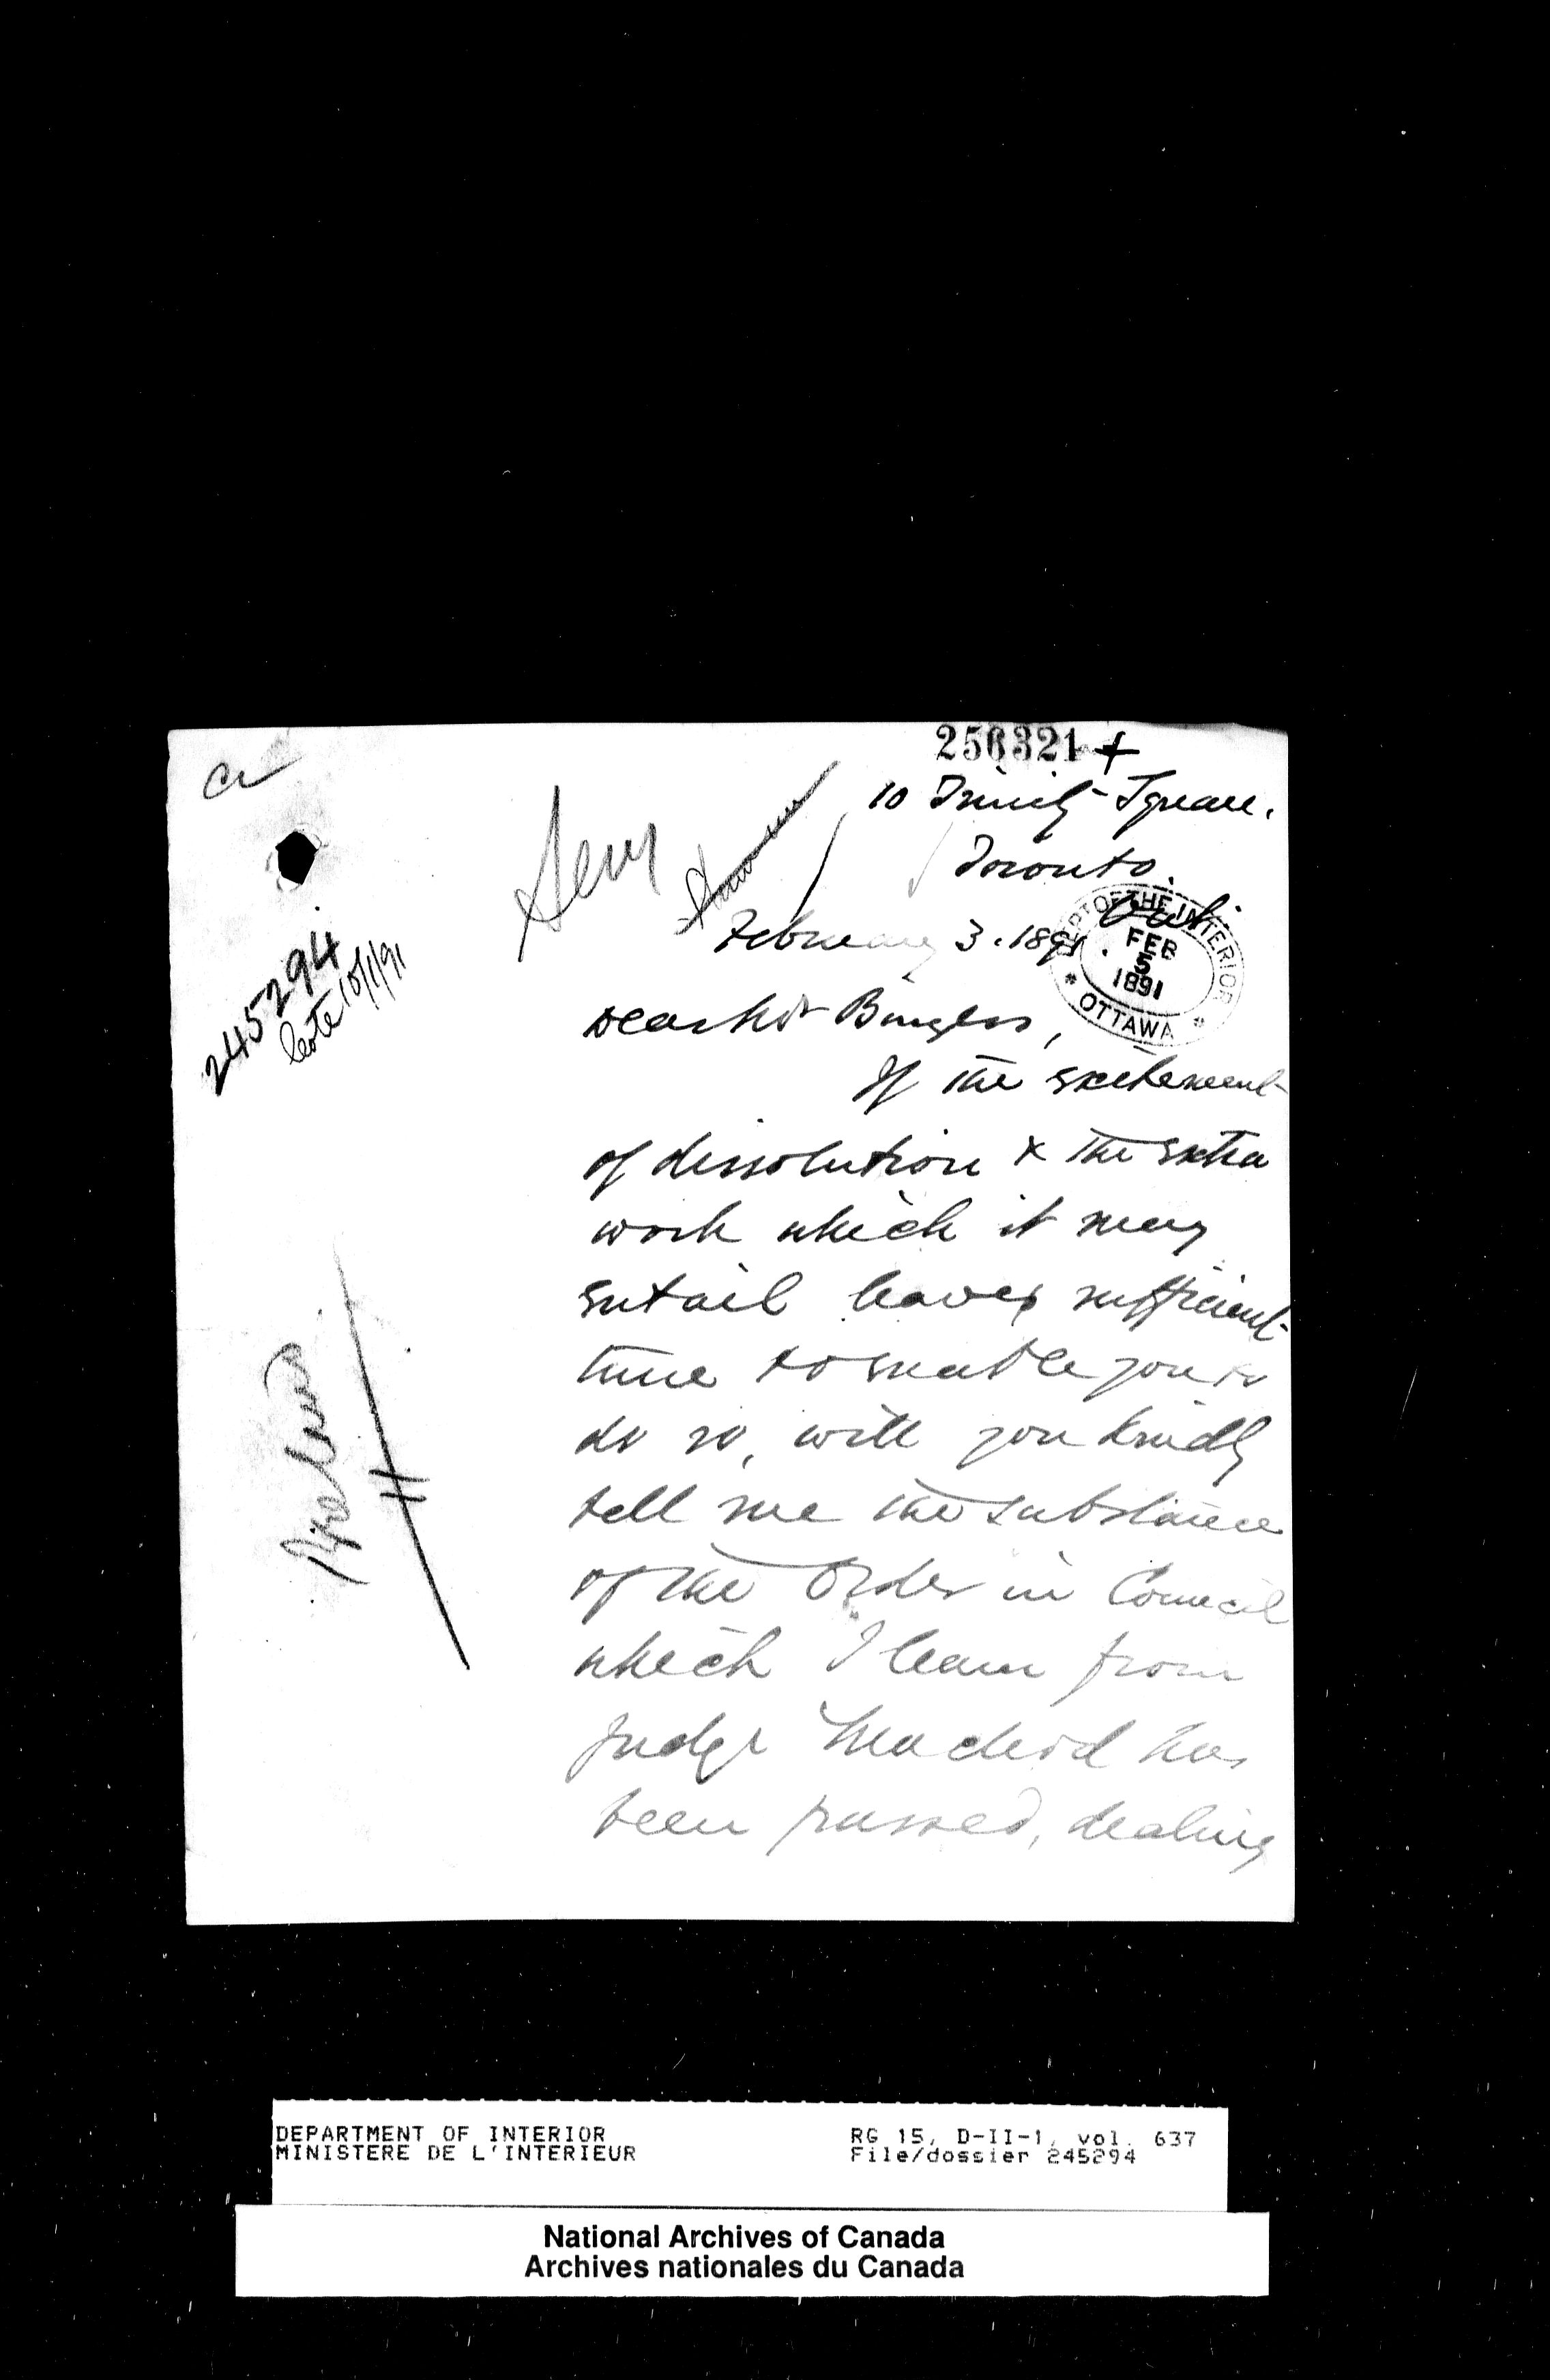 256321
10 Trinity Square.
Toronto.
February 3. 1891
DEPT OF THE INTERIOR
FEB
5
1891
* OTTAWA *
245294
Dear Mr Burgess,
If the excitement
of dissolution & the extra
work which it may
entail leaves sufficient
time to enable you to
do so, will you kindly
tell me the substance
of the Order in Council
which I learn from
Judge Macleod has
been passed, dealing
DEPARTMENT OF INTERIOR
MINISTERE DE L'INTERIEUR
RG 15, D-II-1, vol. 637
File/dossier 245294
National Archives of Canada
Archives nationales du Canada